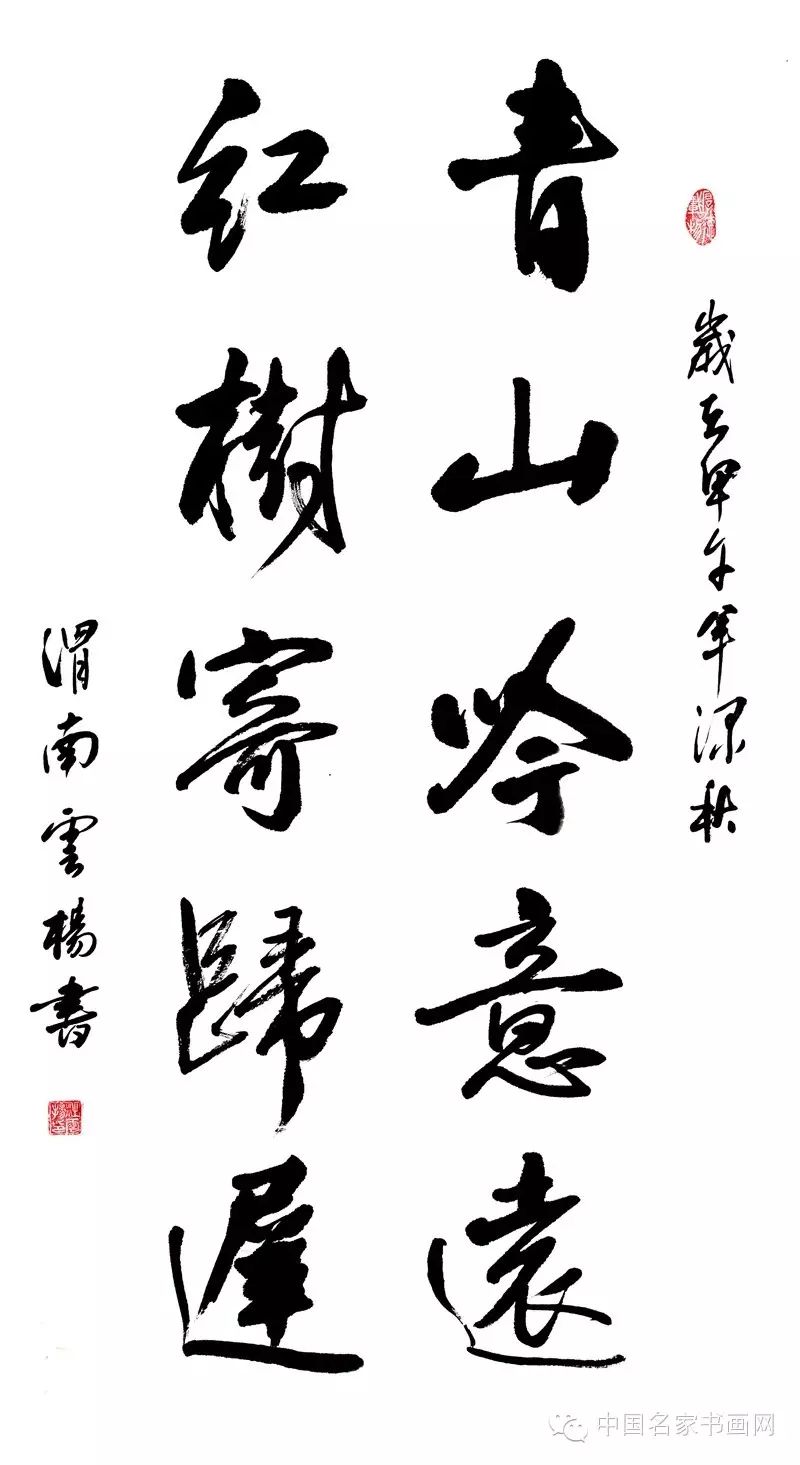 歲在甲午年深秋
青山吟意遠
紅樹寄歸遲
渭南雲楊書
中国名家书画网